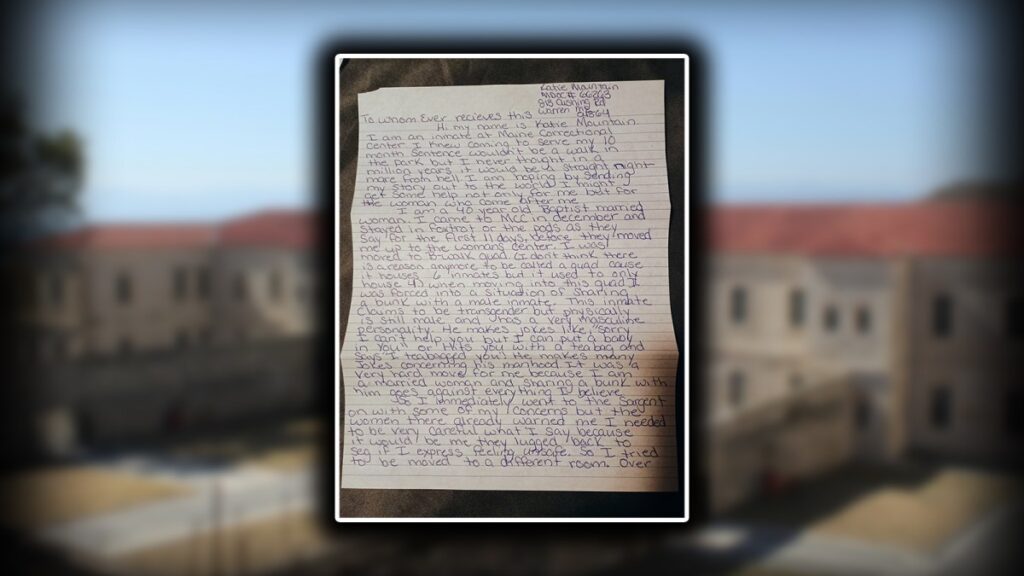 Katie Mountain
MDOC # 66263
813 Cushing Rd
Warren ME
04864
To whom Ever recieves this
Hi my name is Katie Mountain
I am an inmate at Maine Correctional
Center I knew coming to serve my 10
month sentence wouldn't be a walk in
the park but I never thought in a
million years it would be a straight night
mare from hell I am hoping by sending
my story out to the world I might
get some help not only for me but for
the woman who come after me
I am a 40 year old Baptist married
woman. I came to MCC in december and
stayed in foxtrot or the pods as they
say for the first 11 days. Before they moved
me up to the womans center. I was
moved to B-walk quad (I don't think there
is a reason anymore to be called a quad cause
it houses 6 inmates but it used to only
house 4) when moving into this quad I
was forced into a situation of sharing
a bunk with a male inmate. This inmate
claims to be transgender but physically
is still male and has a very masculine
personality. He makes jokes like "sorry
I can't help you but I can put a baby
in you" or hits you with a teabag and
says "I teabagged you" He makes many
jokes concerning his manhood It was a
very hard move for me because I am
a married woman and sharing a bunk with
him goes against everything I believe
So I immediately went to the Sargent
on with some of my concerns but the
women there already warned me I needed
to be very careful what I say because
it would be me they lugged back to
seg if I express feeling unsafe. So I tried
to be moved to a different room. Over